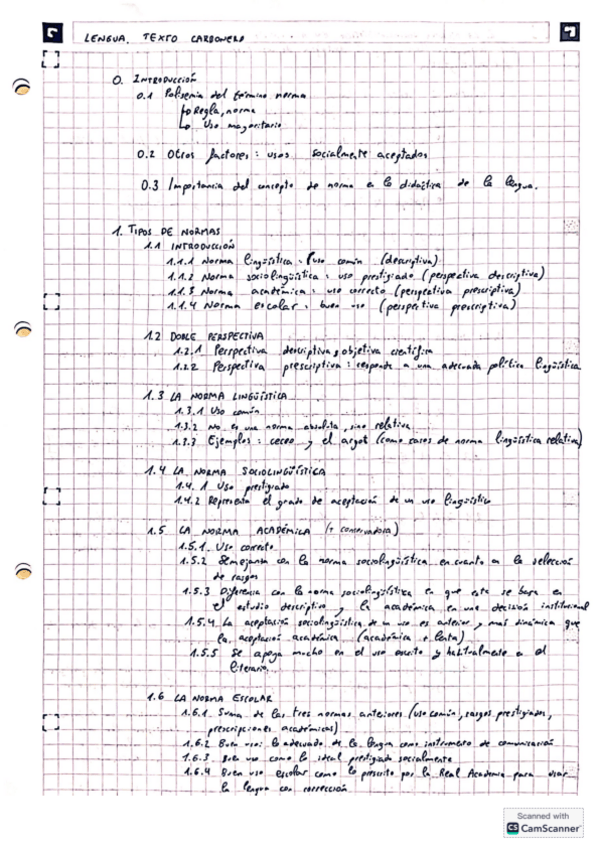 LENGUA. TEXTO CARBONERO
0. INTRODUCCIÓN
0.1 Polisemia del término norma
Regla, norma
Uso mayoritario
0.2 Otros factores: usos socialmente aceptados
0.3 Importancia del concepto de norma en la didáctica de la lengua.
1. TIPOS DE NORMAS
1.1 INTRODUCCIÓN
1.1.1 Norma lingüística: uso común (descriptiva)
1.1.2 Norma sociolingüística: uso prestigiado (perspectiva descriptiva)
1.1.3 Norma académica: uso correcto (perspectiva prescriptiva)
1.1.4 Norma escolar: buen uso (perspectiva prescriptiva)
1.2 DOBLE PERSPECTIVA
1.2.1 Perspectiva descriptiva y objetiva científica
1.2.2 Perspectiva prescriptiva: responde a una adecuada política lingüística
1.3 LA NORMA LINGÜÍSTICA
1.3.1 Uso común
1.3.2 No es una norma absoluta, sino relativa
1.3.3 Ejemplos: ceceo y el argot (como casos de norma lingüística relativa)
1.4 LA NORMA SOCIOLINGÜÍSTICA
1.4.1 Uso prestigiado
1.4.2 Representa el grado de aceptación de un uso lingüístico
1.5 LA NORMA ACADÉMICA (+ conservadora)
1.5.1. Uso correcto
1.5.2 Semejanza con la norma sociolingüística en cuanto a la selección
de rasgos
1.5.3 Diferencia con la norma sociolingüística en que esta se basa en
el estudio descriptivo y la académica en una decisión institucional
1.5.4 La aceptación sociolingüística de un uso es anterior y más dinámica que
la aceptación académica (académica + lenta)
1.5.5 Se apoya mucho en el uso escrito y habitualmente en el
literario.
1.6 LA NORMA ESCOLAR
1.6.1. Suma de las tres normas anteriores (uso común, rasgos prestigiados,
prescripciones académicas)
1.6.2 Buen uso: lo adecuado de la lengua como instrumento de comunicación
1.6.3 Buen uso como lo ideal prestigiado socialmente
1.6.4 Buen uso escolar como lo prescrito por la Real Academia para usar
la lengua con corrección
Scanned with
CS CamScanner